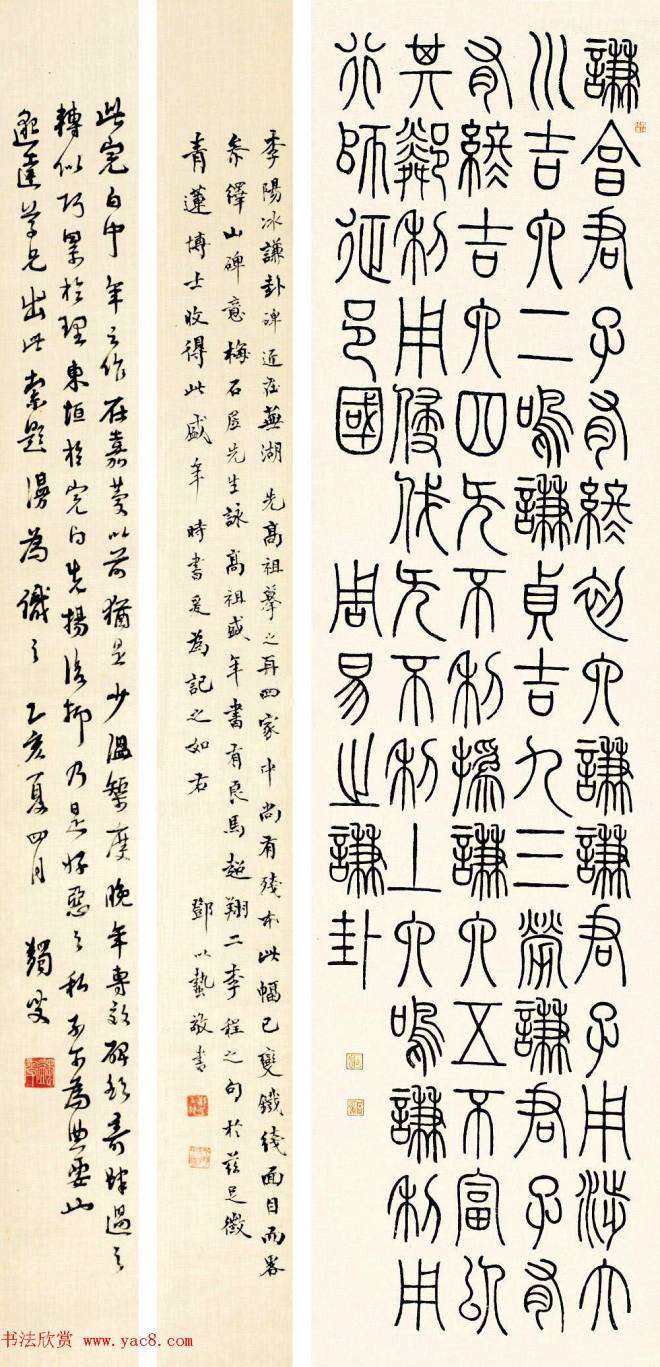 謙亯君子有終初六謙謙君子用涉大
川吉六二鳴謙貞吉九三勞謙君子有
有終吉六四无不利撝謙六五不富以
其鄰利用侵伐无不利上六鳴謙利用
行師征邑國 周易之謙卦
李陽冰謙卦碑近在蕪湖先高祖摹之再四家中尚有殘本此幅已變鐵綫面目而畧
參繹山碑意梅石居先生詠高祖盛年書有良馬超翔二李程之句於茲足徵
青蓮博士收得此盛年時書爰為記之如右 鄧以蟄敬書
此完白中年之作在嘉慶以前猶是少溫榘度晚年專效碑額奇肆過之
轉似巧累於理東垣於完白先揚後抑乃是好惡之私不為典要
學兄出此索題漫為識之 乙亥夏四月 蠲叟
书法欣赏 www.yac8.com